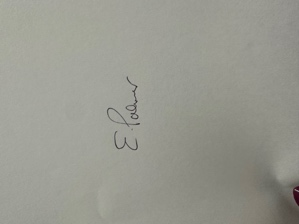 E. Palmer